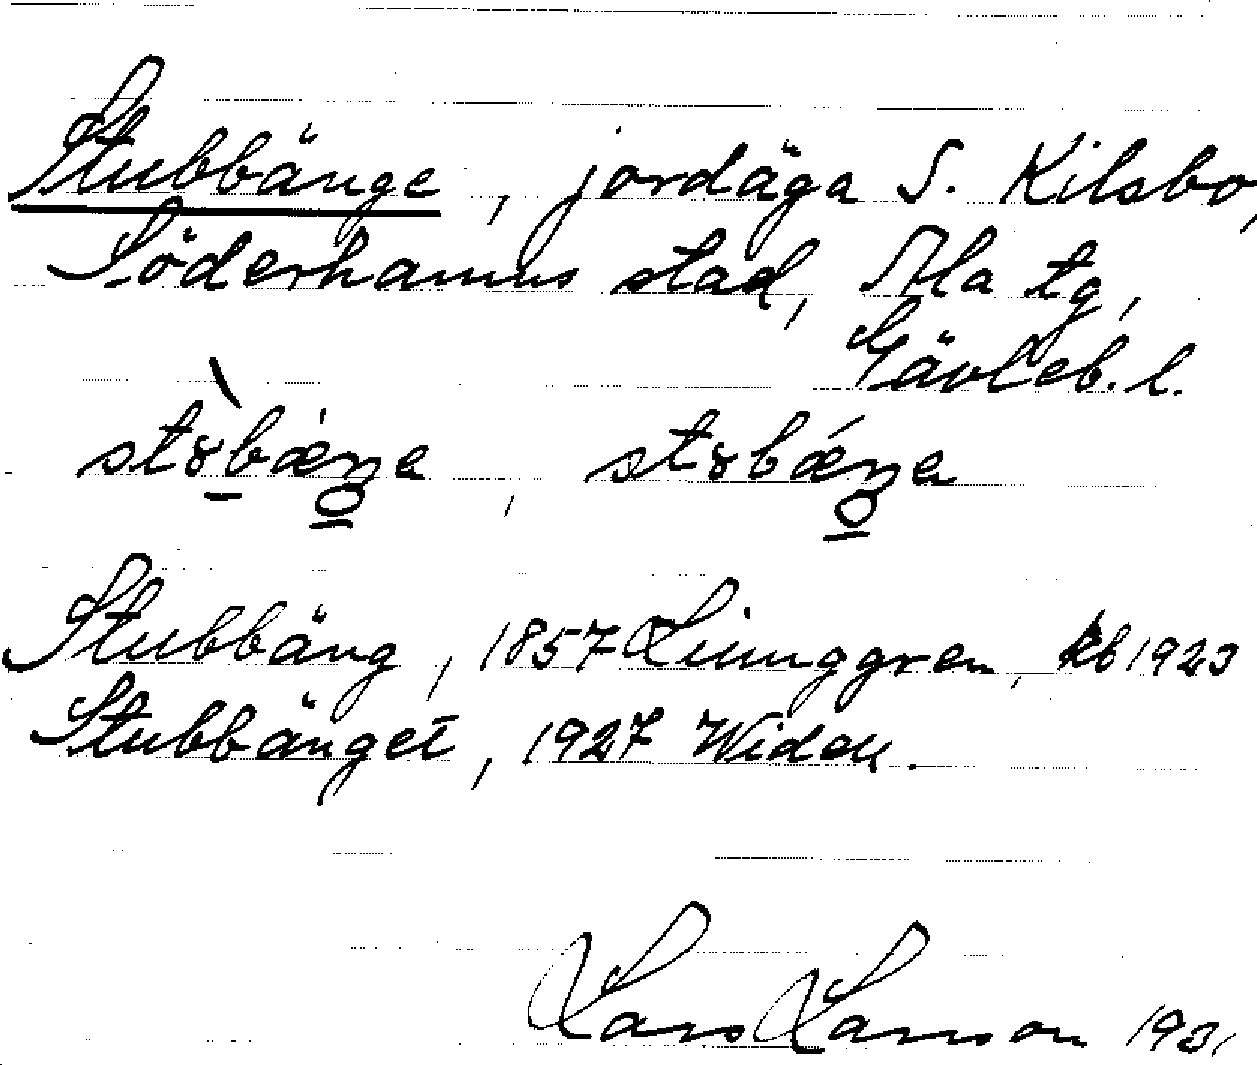 Stubbänge, jordäga S. Kilsbo,
Söderhamns stad, Ala tg,
Gävleb. l.
Stubbäng, 1857 Ljunggren, kb 1923
Stubbänget, 1927 Widen.
Lars Larsson